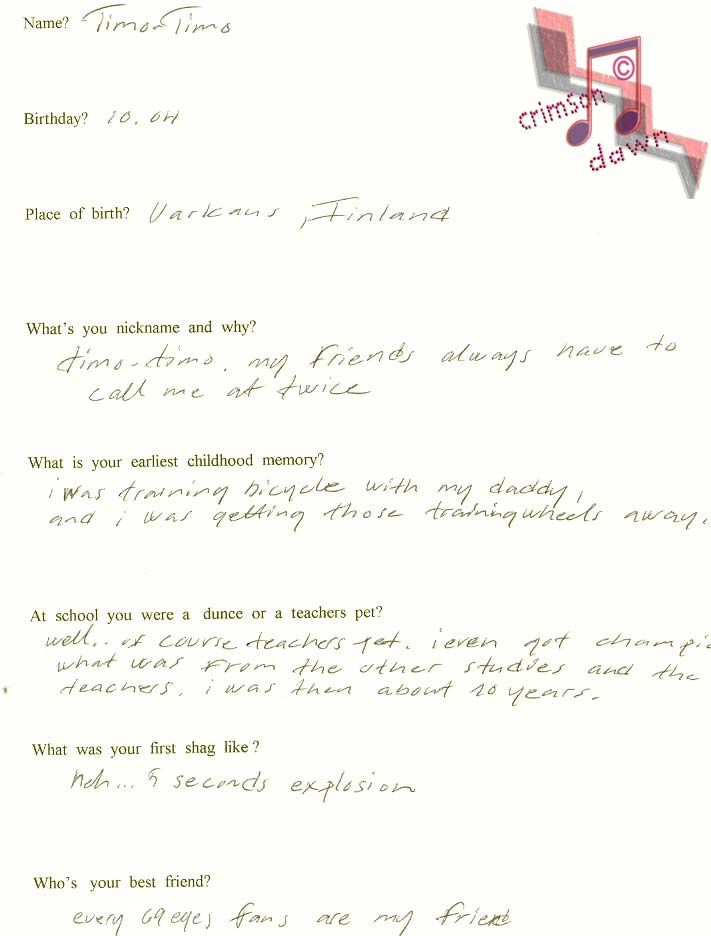 Name? Timo-Timo
crimson
©
dawn
Birthday? 10.04
Place of birth? Varkaus, Finland
What's you nickname and why?
timo-timo. my friends always have to
call me at twice
What is your earliest childhood memory?
i was training bicycle with my daddy,
and i was getting those trainingwheels away.
At school you were a dunce or a teachers pet?
well.. of course teachers pet. i even got champi
what was from the other studies and the
teachers. i was then about 10 years.
What was your first shag like?
heh... 5 seconds explosion
Who's your best friend?
every 69eyes fans are my friend